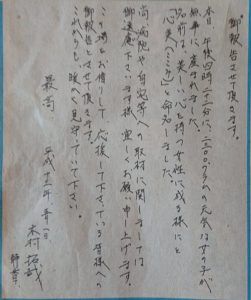 御報告させて頂きます。
本日、午後四時二十二分に、二三〇〇グラムの元気な女の子が
無事に産まれました。
名前は、美しい心を持つ女性に成る様にと
心美(ここみ)と命名しました。
尚、病院や自宅等への取材に関しましては
御遠慮下さいます様、宜しくお願い申し上げます。
この場をお借りして、応援して下さっている皆様への
御報告とさせて頂きます。
これからも、暖かく見守っていて下さい。
敬具
平成十三年五月一日
木村拓哉
静香